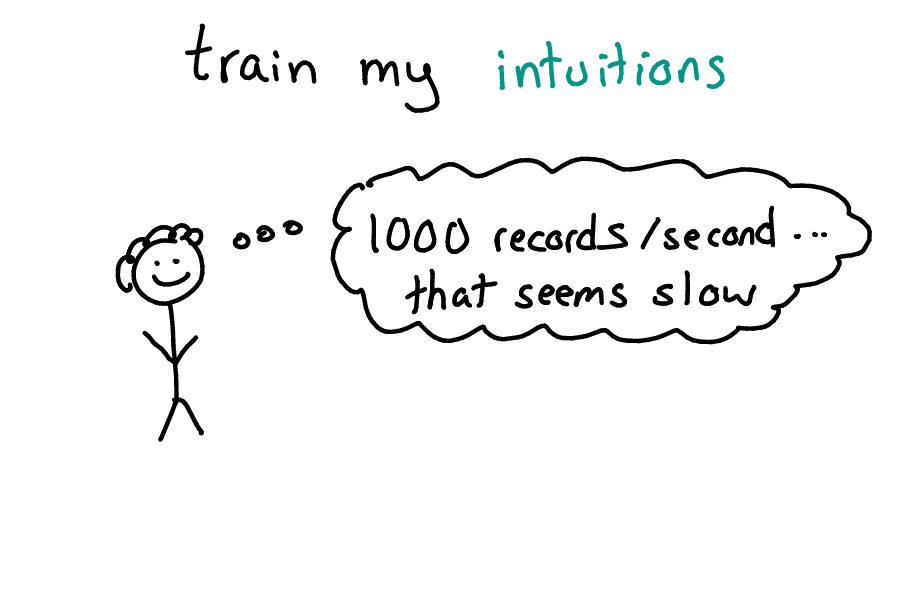 train my intuitions
1000 records/second ...
that seems slow